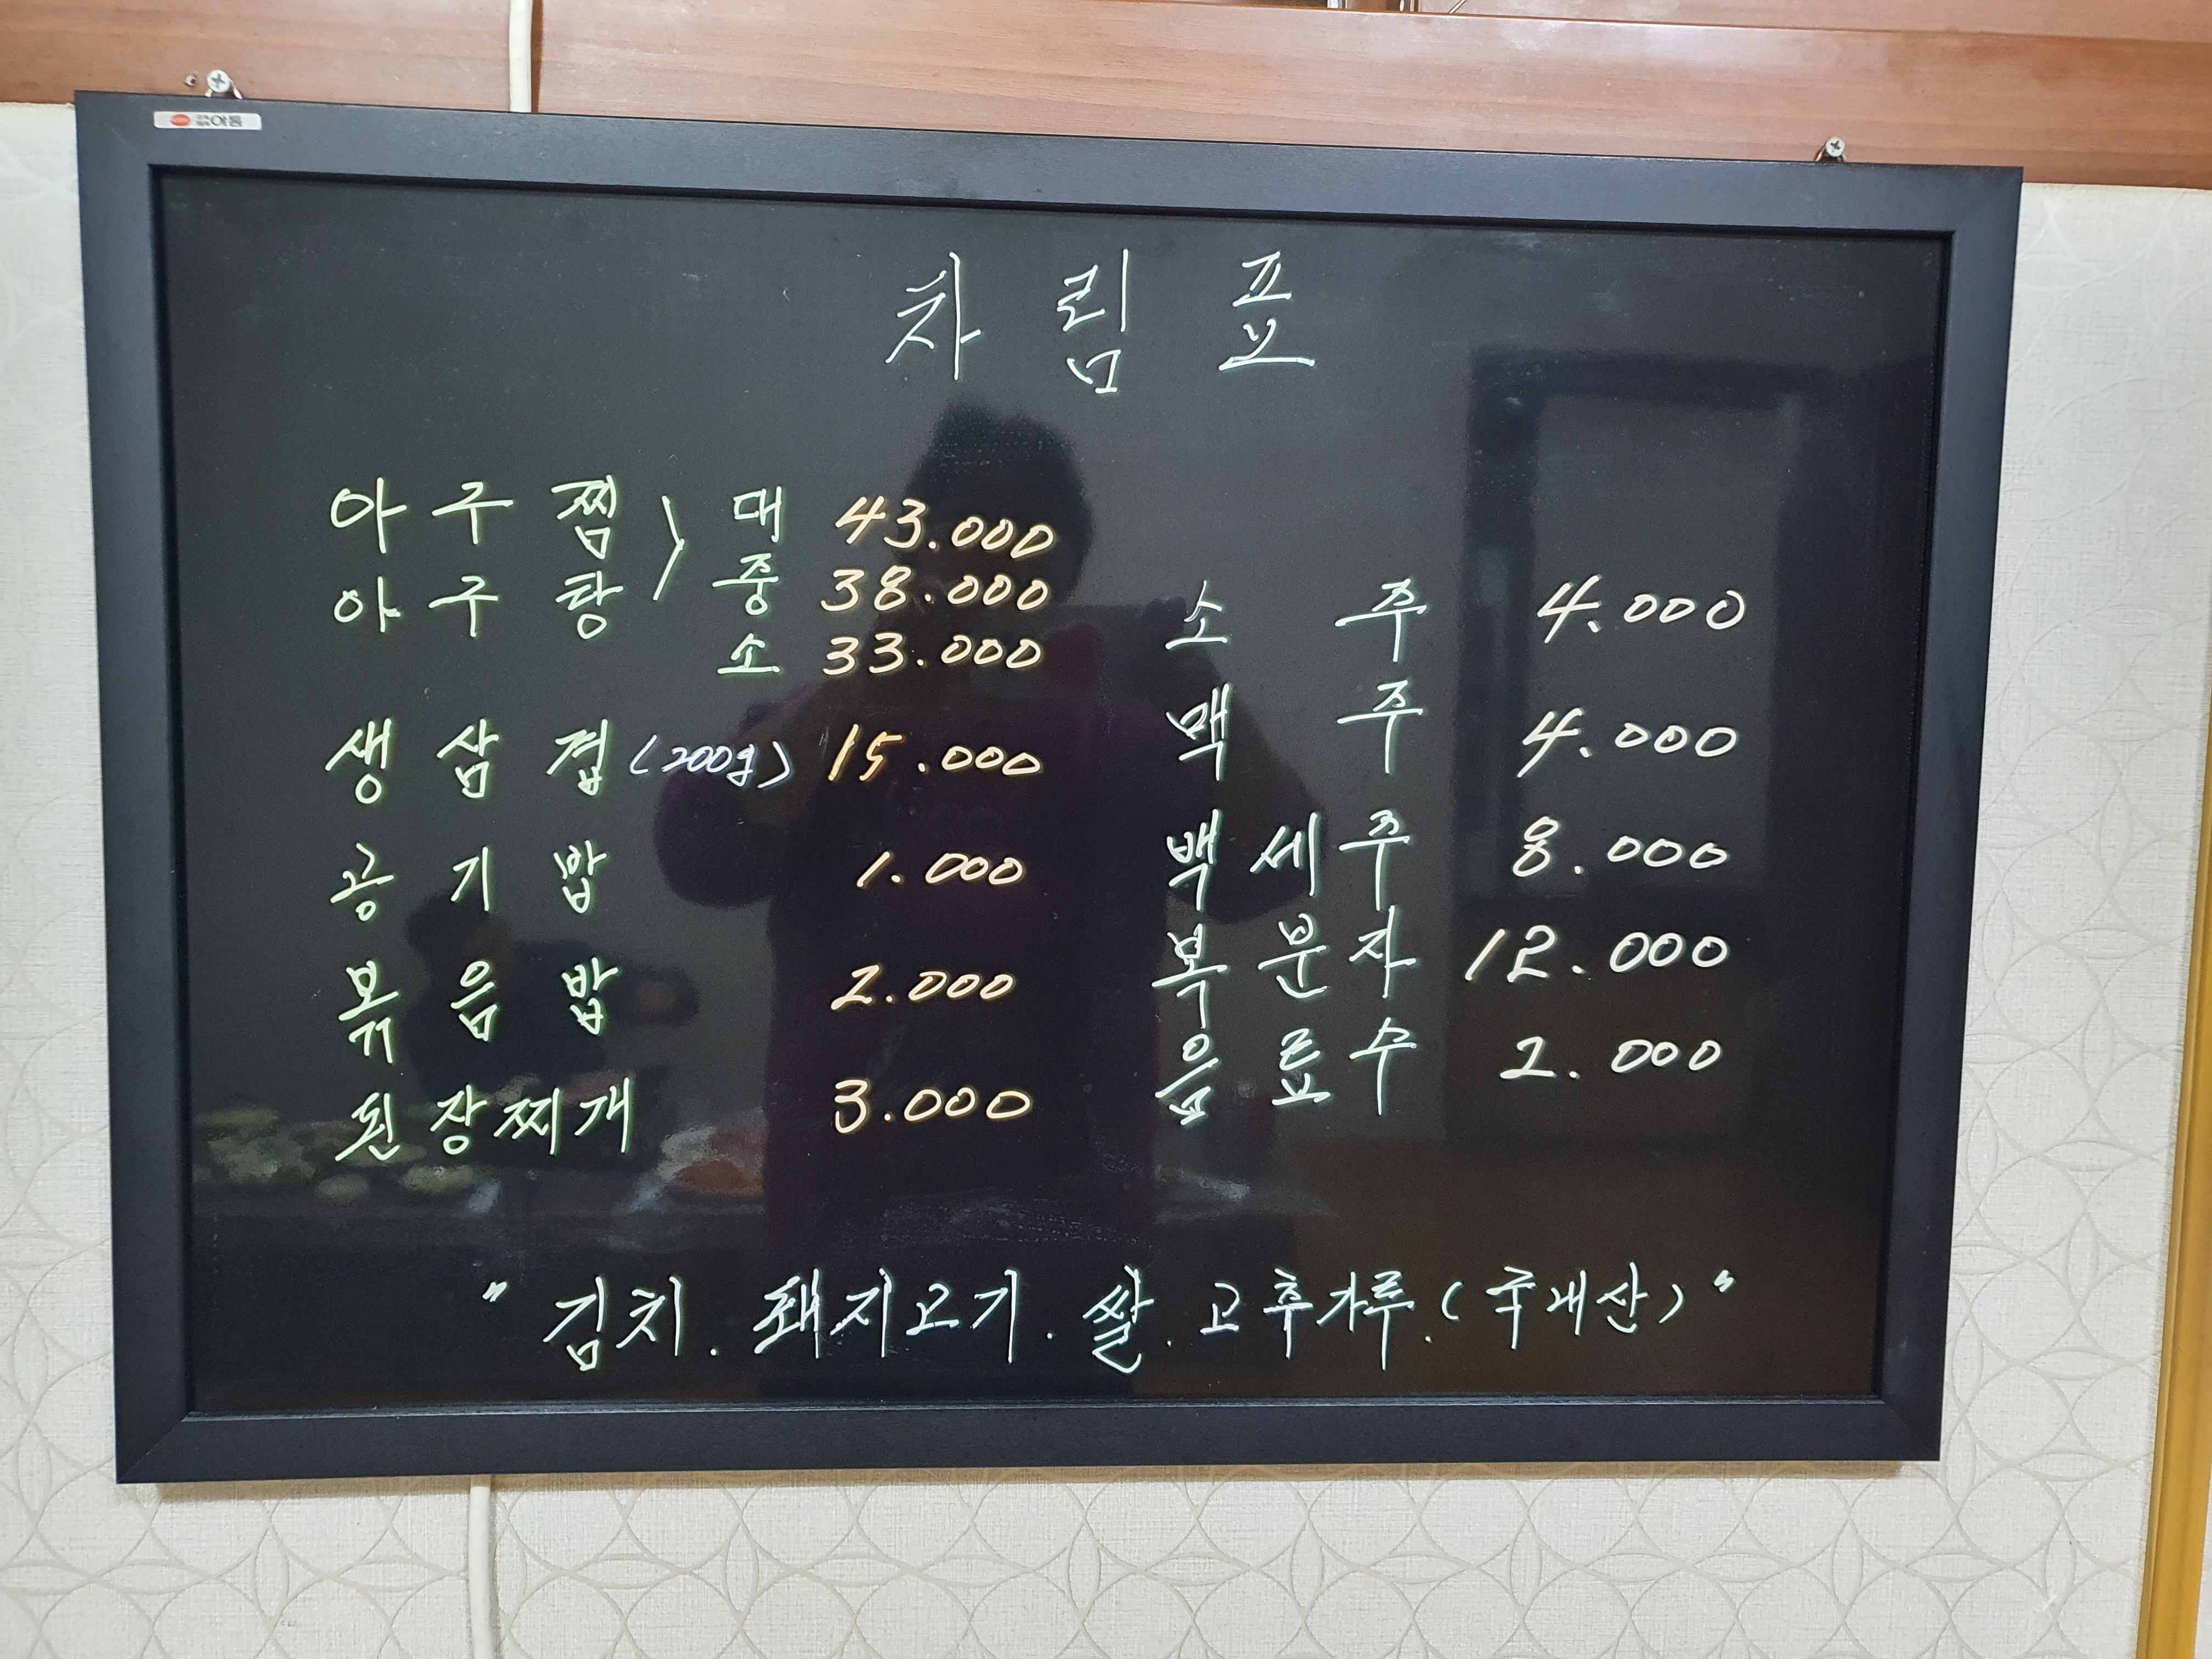 차림표
아구찜 > 대 43.000
아구탕 중 38.000
소 33.000
생삼겹(200g) 15.000
공기밥 1.000
볶음밥 2.000
된장찌개 3.000
소주 4.000
맥주 4.000
백세주 8.000
복분자 12.000
음료수 2.000
" 김치. 돼지고기. 쌀. 고추가루. (국내산) "